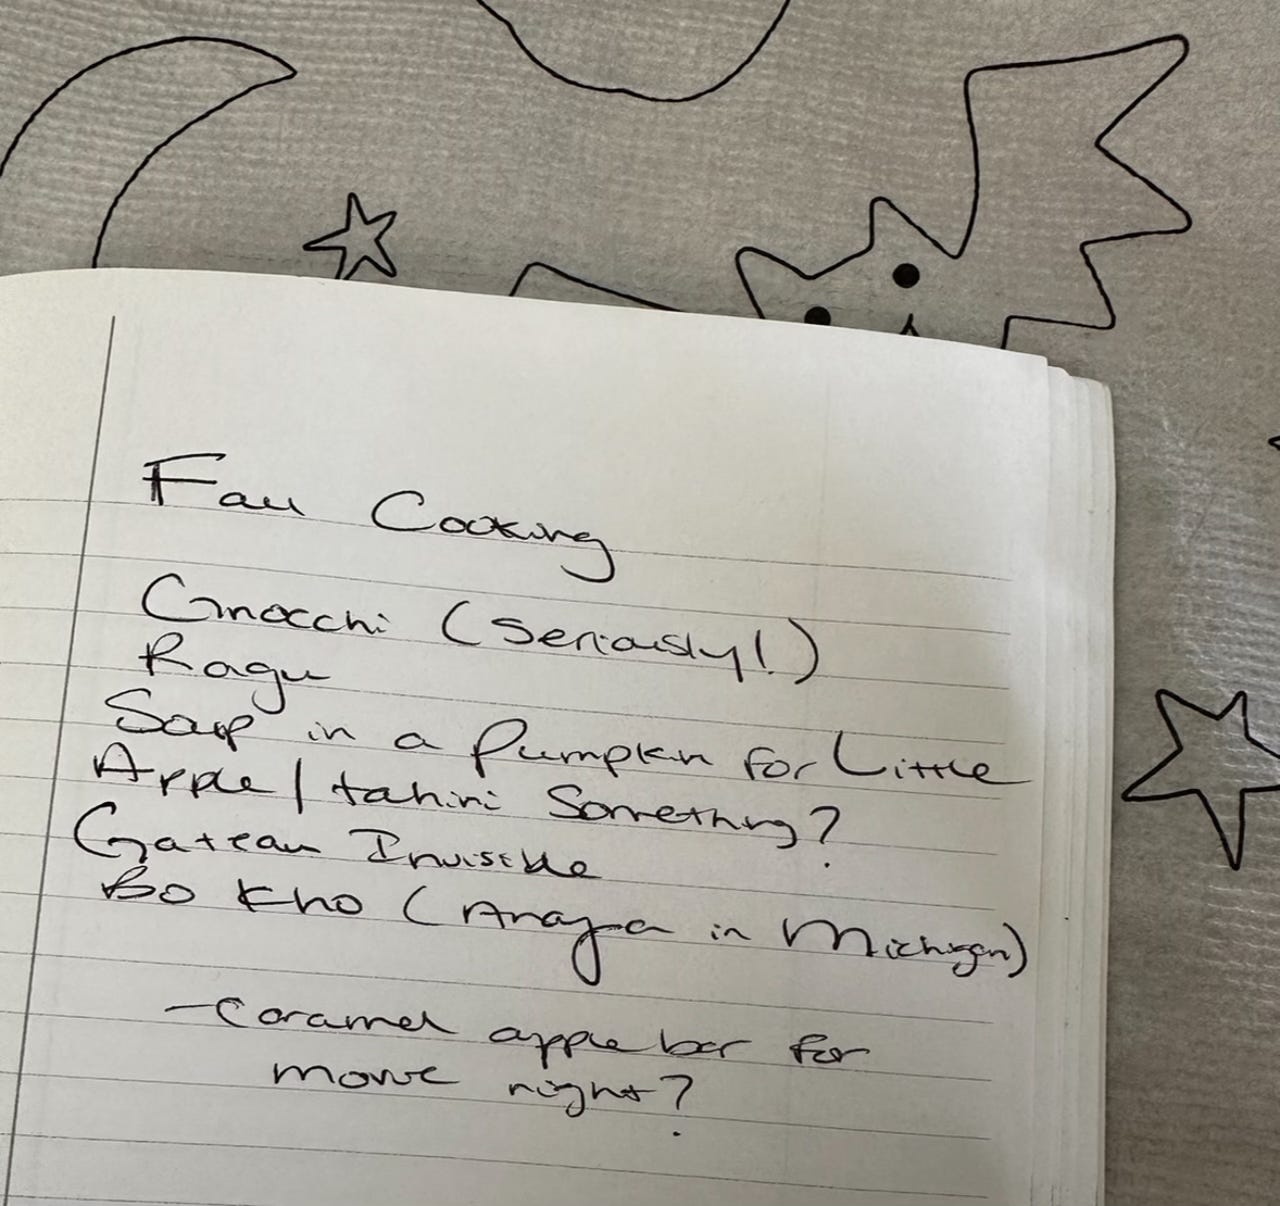 Fall Cooking
Gnocchi (seriously!)
Ragu
Soup in a Pumpkin for Little
Apple / tahini Something?
Gateau Invisible
Bo Kho (Anaya in Michigan)
- Caramel apple bar for
movie night?